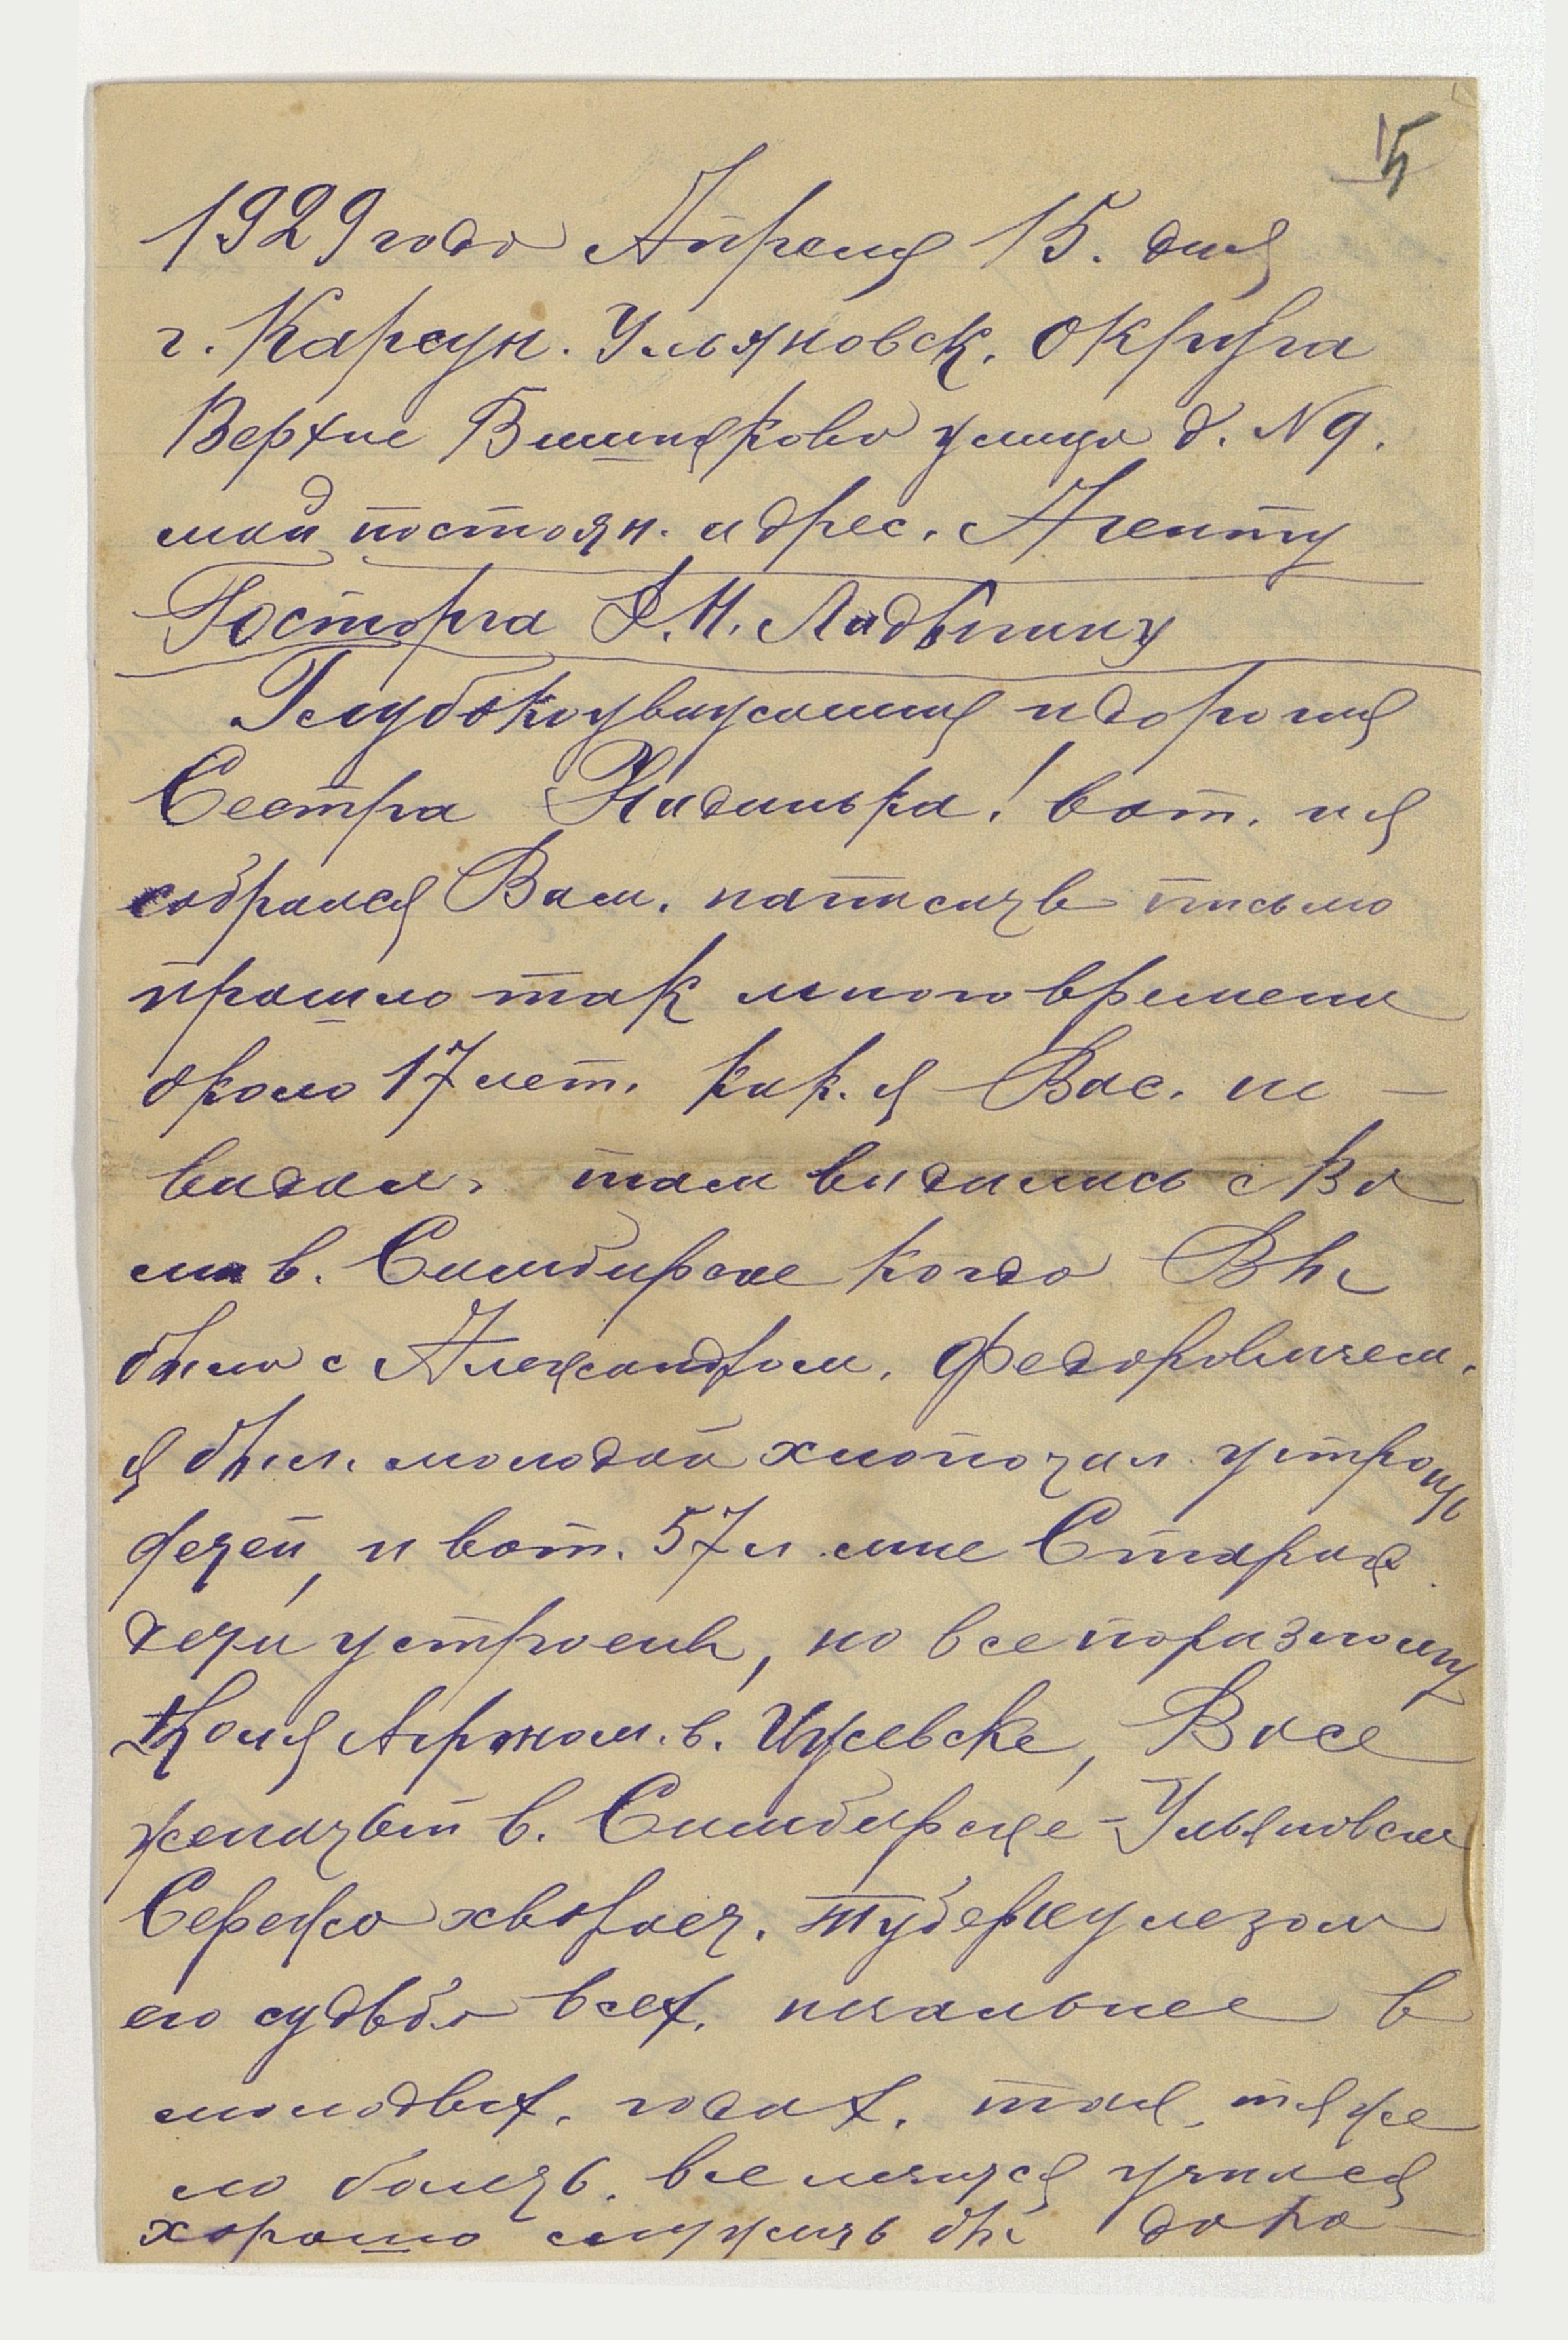 15
1929 года Апреля 15. дня
г. Карсун. Ульяновск. округа
Верхне Вишняково улица д. № 9.
мой постоян. адрес. Агенту
Госторга Ф. Н. Ладыгину
Глубокоуважаемая и дорогая
Сестра Надинька! вот. и я
собрался Вам. написать письмо
прошло так много времени
около 17 лет. как. я Вас. не –
видал. там видились с Ва
ми в. Симбирске когда Вы
были с Александром. Федоровичем.
я был. молодой хлопотал. устроить
детей, и вот. 57 л. мне Старик.
дети устроены, но все поразному
Коля Агроном. в. Ижевске, Вася
женатый в. Симбирске - Ульяновске
Сережа хворает. туберкулезом
его судьба всех. печальнее в
молодых. годах. так. тяже
ло болеть. все лечится учился
хорошо служить бы да по –